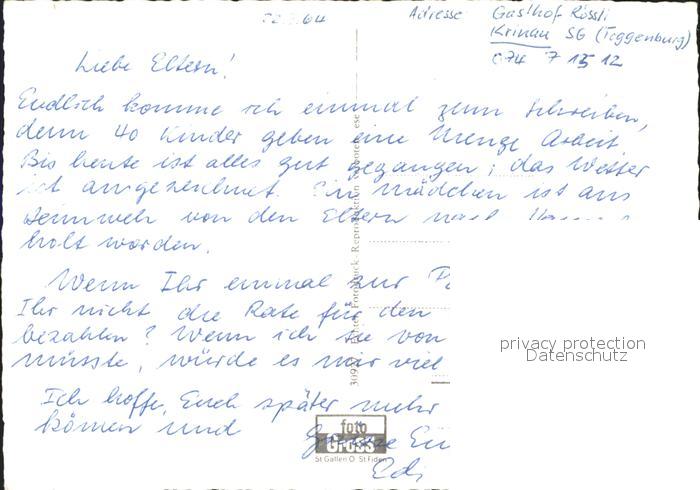 .64
Adresse Gasthof Rössli
Krinau SG (Toggenburg)
074 7 15 12
Liebe Eltern!
Endlich komme ich einmal zum schreiben,
denn 40 Kinder geben eine Menge Arbeit.
Bis heute ist alles gut gegangen; das Wetter
ist ausgezeichnet. Ein Mädchen ist aus
Heimweh von den Eltern nach
holt worden.
Wenn Ihr einmal zur
Ihr nicht die Rate für den
bezahlen? Wenn ich sie von
müsste, würde es nur viel
Ich hoffe, Euch später mehr
können und
Eu
Edi
foto
Gross
St Gallen O St Fiden
Reproduktion
privacy protection
Datenschutz